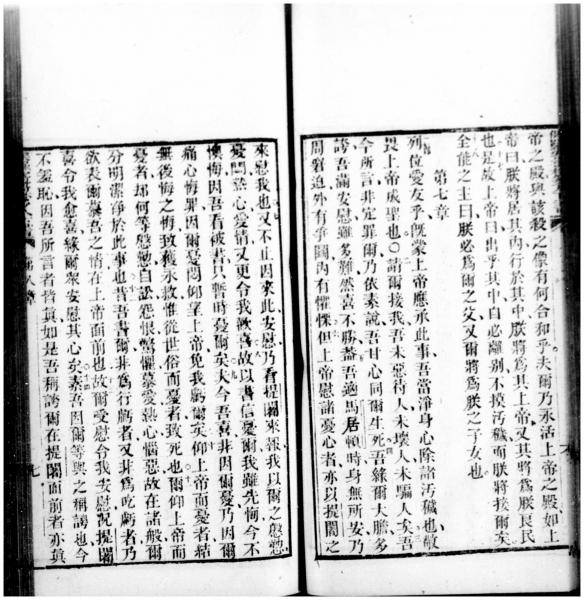 帝之殿與該殺之像有何合和乎夫爾乃永活上帝之殿如上
帝曰朕將居其內行於其中朕將爲其上帝又其將爲朕良民
也是故上帝曰出乎其中自必離别不摸汚穢而朕將接爾矣
全能之主曰朕必爲爾之父又爾將爲朕之子女也
第七章
列位愛友乎既蒙上帝應承此事吾當淨身心除諸汚穢也敬
畏上帝成聖也〇請爾接我吾未惡待人未壞人未騙人矣吾
今所言非定罪爾乃依素說吾甘心同爾生死吾緣爾大膽多
誇吾滿安慰雖多難然喜不勝葢吾適馬居頓時身無所安乃
周窘迫外有爭鬪內有懼慄但上帝慰諸憂心者亦以提閣之
來慰我也又不止因來此安慰乃看提閣來報我以爾之慇愍
憂悶於心愛情又更令我歡喜故以書信憂爾我雖先悔今不
懊悔因吾看彼書只暫時憂爾矣夫今吾喜非因爾憂乃因爾
痛心悔罪因爾憂悶仰望上帝免我虧爾矣仰上帝面憂者結
無後悔之悔致獲永救惟從世俗而憂者致死也爾仰上帝面
憂者却何等慇懃自訟怨恨驚懼摹愛熱心惱惡故在諸般爾
分明潔淨於此事也昔吾書爾非爲行虧者又非爲吃虧者乃
欲表爾摹吾之情在上帝面前也故爾受慰令我安慰况提閣
喜令我愈喜緣爾衆安慰其心矣素吾因爾等與之稱誇也今
不羞恥因吾所言者皆眞如是吾稱誇爾在提閣面前者亦眞